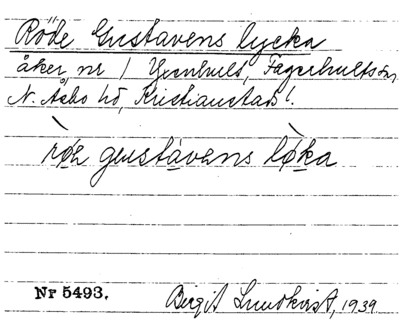 Röde Gustavens lycka
åker, nr 1 Yxenhult, Fagerhults sn,
N. Åsbo hd, Kristianstads l.
gustávens løka
Nr 5493. Birgit Lundkvist, 1939